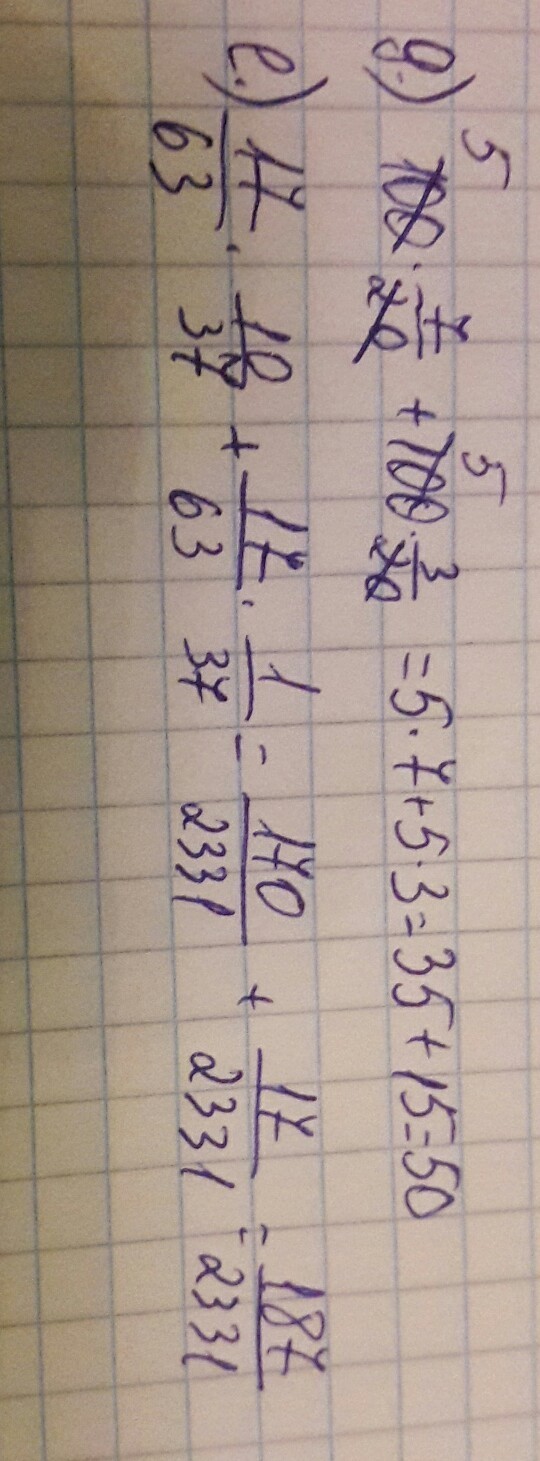 g.) 5 100 · 7/20 + 5 100 · 3/20 = 5 · 7 + 5 · 3 = 35 + 15 = 50
e.) 17/63 · 10/37 + 17/63 · 1/37 = 170/2331 + 17/2331 = 187/2331